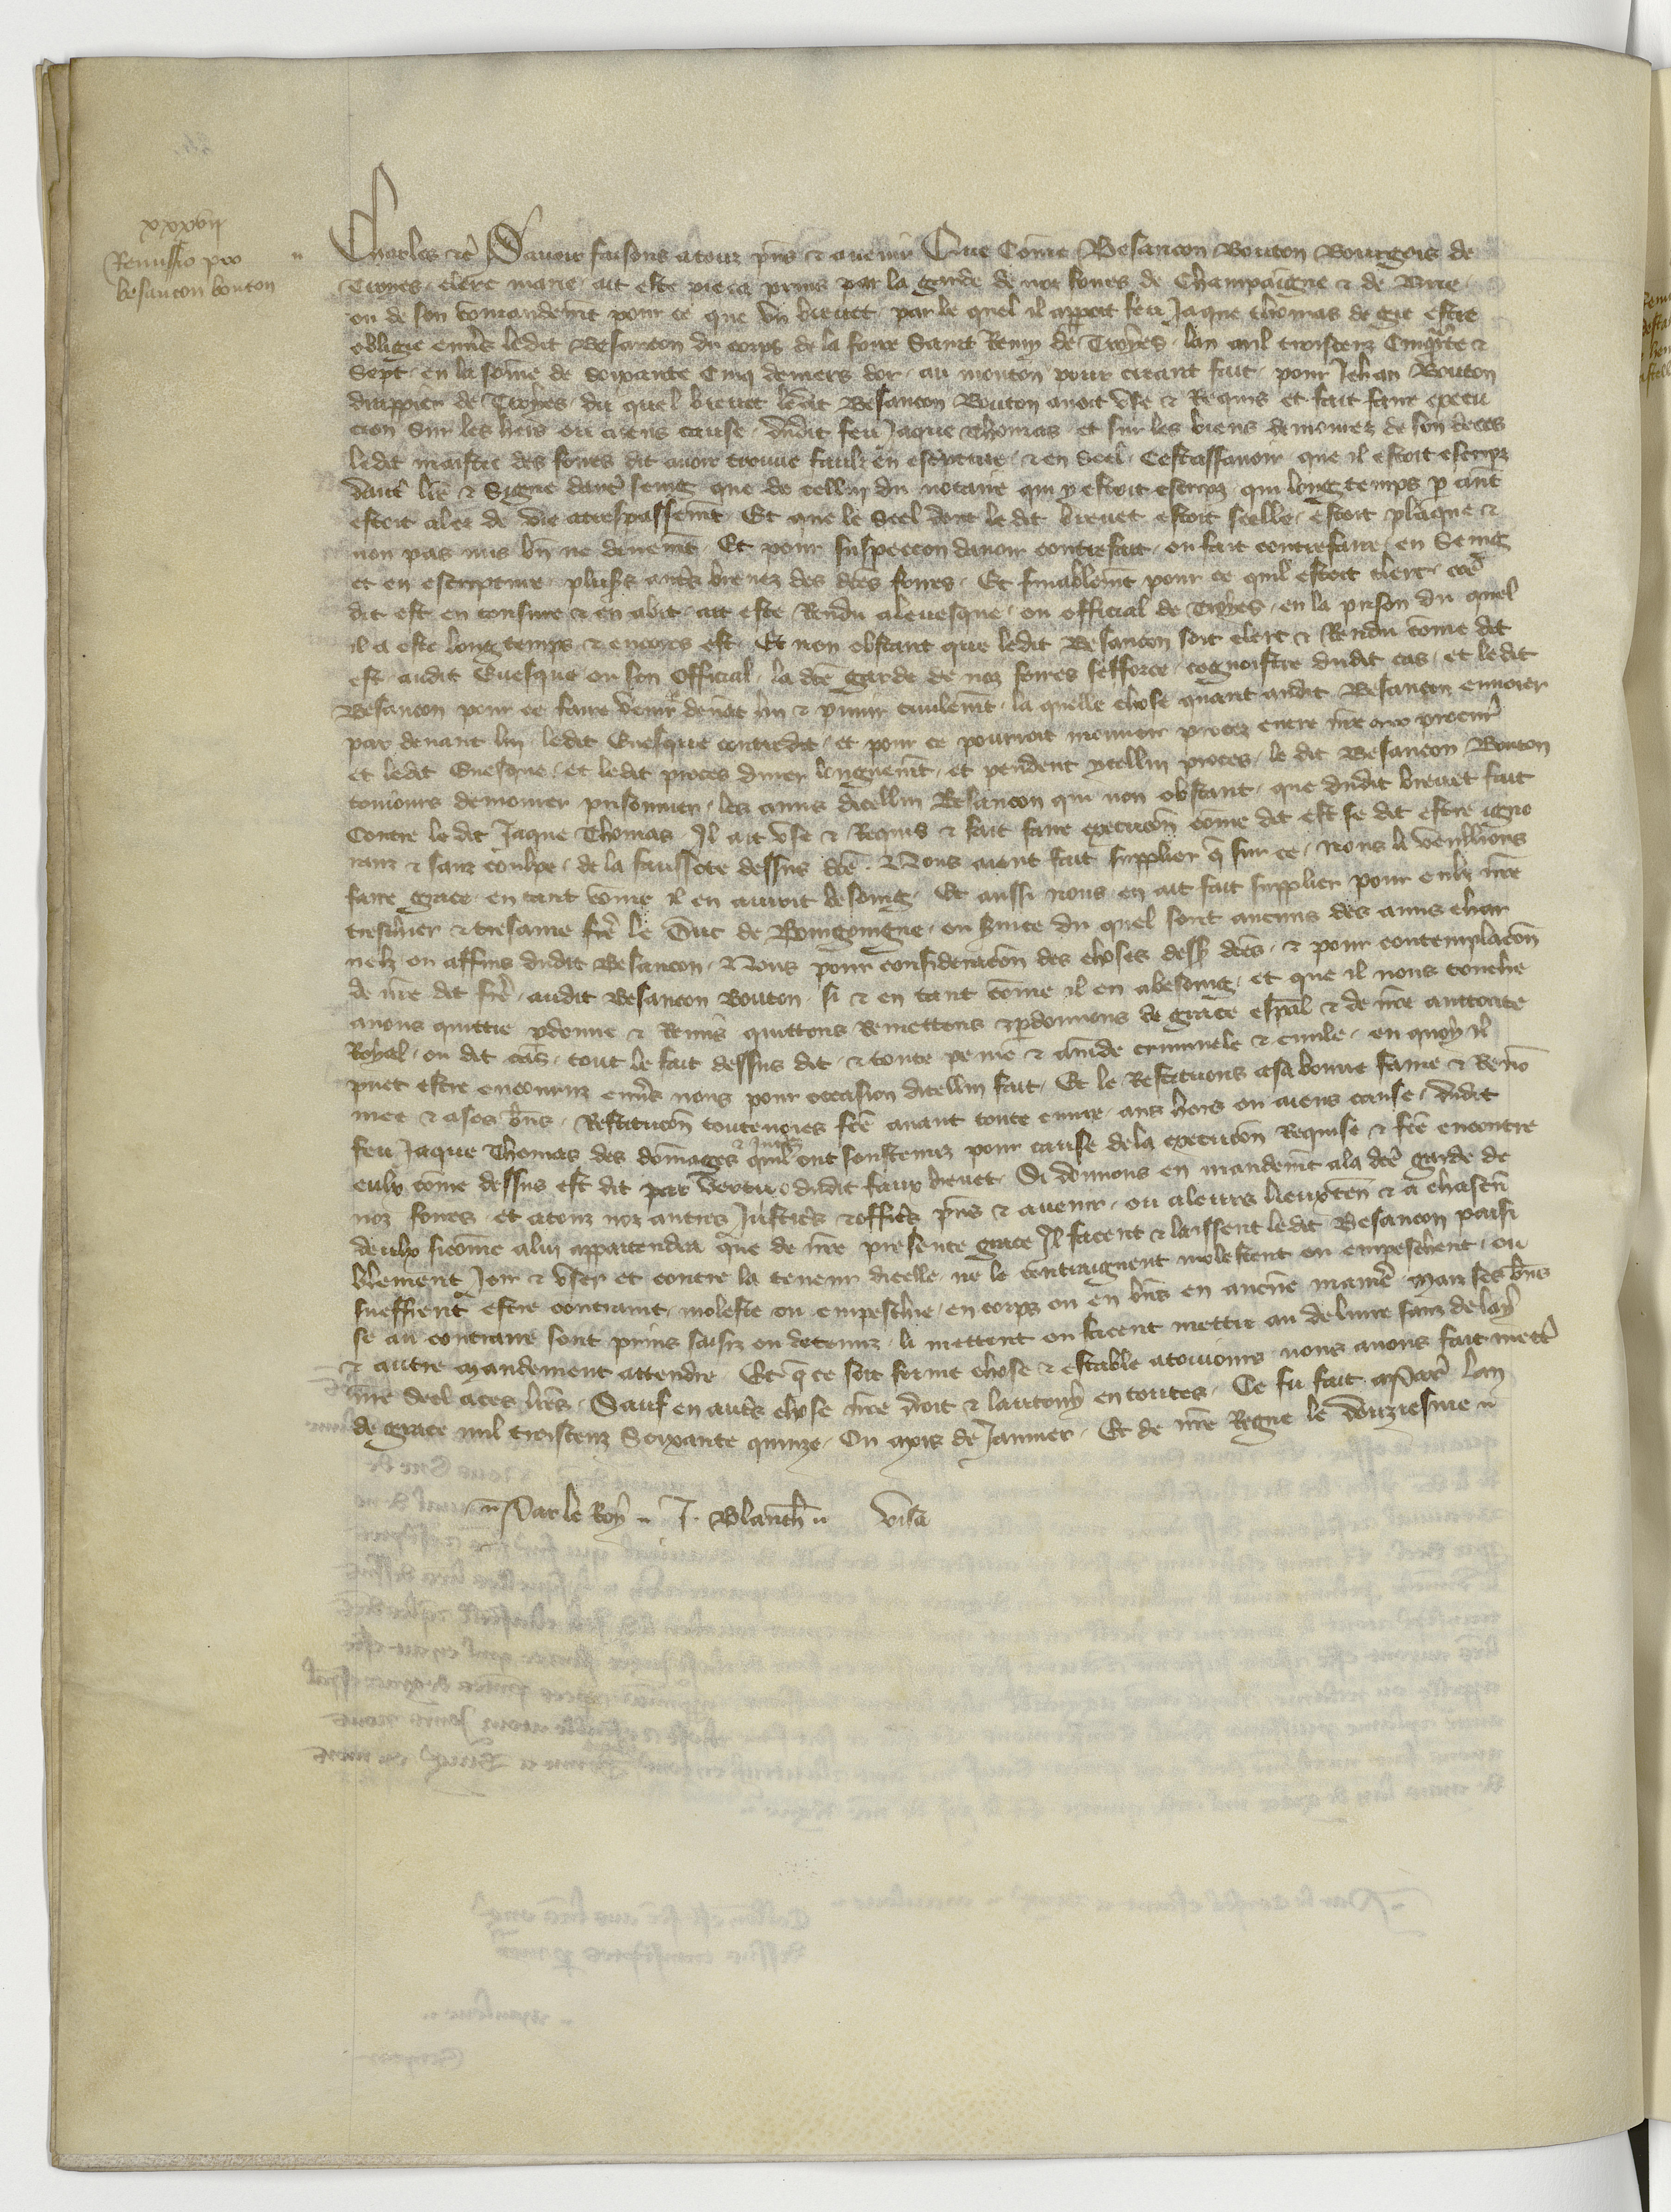 xxxvii
Remissio pro
besancon bouton
Charles etc̃ Sauoir faisons atouz p̃ns & auenir Que Cõme Besancon Bouton Bourgois de
Troyes clerc marie ait este pieca prins par la garde de noz foires de Champaigne & de Brie
ou de son cõmandem̃t pour ce que vn breuet par le quel il appert feu Jaque thomas de gie estre
obligie enũs ledit Besancon du corps de la foire Saint Remy de Troyes lan mil troiscenz Cinq̃nte &
Sept en la sõme de soixante Cinq deniers dor au mouton pour creant fait pour Jehan Bouton
drappier de Troyes du quel breuet ledit Besancon Bouton auoit vse & Requis et fait faire execu
cion Sur les hers ou aiens cause dudit feu Jaque thomas et sur les biens demourez de son deces
ledit maistre des foires dit auoir trouue faulx en escripture & en Seel Cestassauoir que il estoit escripz
daut̃ lr̃e & Signe daut̃ seing que de cellui du notaire qui y estoit escripz qui long temps p auñt
estoit alez de vie a trespassem̃t Et que le Seel dont ledit breuet estoit scelle estoit plaque &
non pas mis bñ ne deuem̃t Et pour suspeccon dauoir contrefait ou fait contrefaire en Seing
et en escripture plus̃s aut̃s breuez des dc̃es foires Et finablem̃t pour ce quil estoit clerc cõe
dit est en tonsure & en abit ait este Rendu aleuesque ou official de Troyes en la prison du quel
il a este long temps & encores est Et non obstant que ledit Besancon soit clerc & Rendu cõme dit
est audit Euesque ou son Official la dc̃e garde de noz foires sefforce cognoistre dudit cas et ledit
Besancon pour ce faire venir deuãt lui & punir ciuilem̃t la quelle chose quant audit Besancon enuoier
par deuant lui ledit Euesque contredit et pour ce pourroit mouuoir procez entre nr̃e procur̃
et ledit Euesque et ledit proces durer longuem̃t et pendent ycellui proces le dit Besancon Bouton
touiours demourer prisonnier les amis dicellui Besancon qui non obstant que dudit breuet fait
Contre le dit Jaque Thomas Il ait vse & Requis & fait faire execucõn cõme dit est se dit estre igno
rant & sanz coulpe de la faussete dessus dc̃e Nous aient fait supplier q̃ sur ce nous li veuillions
faire grace en tant cõme il en auroit besoing Et aussi nous en ait fait supplier pour eulx nr̃e
treschier & tresame fr̃e le Duc de Bourgoingne ou seruice du quel sont aucuns des amis char
nelz ou affins dudit Besancon Nous pour consideracõn des choses dess̃ dc̃es & pour contemplacõn
de nr̃e dit fr̃e audit Besancon Bouton si & en tant cõme il en abesoing et que il nous touche
auons quittie pdonne & Remis quittons Remettons & pardonnons de grace esp̃al & de nr̃e auttorite
Royal ou dit cas tout le fait dessus dit & toute peine & amẽde criminele & ciuile en quoy il
puet estre encouruz enũs nous pour occasion dicellui fait Et le Restituons asa bonne fame & Renõ
mee & ases bñs Restitucõn toutesuoies fc̃e auant toute euure aus hers ou aiens cause dudit
feu Jaque Thomas des dõmages & int̃es quilz ont soustenuz pour cause dela execucõn Requise & fc̃e encontre
eulx cõme dessus est dit par vertu dudit faux breuet Si donnons en mandem̃t ala dc̃e garde de
noz foires et atouz noz autres Justicie̊s & offic̃s p̃ns & auenir ou aleurs lieuxteñ & a chascũ
deulx sicõme alui appartendra que de nr̃e presente grace Il facent & laissent ledit Besancon paisi
blement Joir & vser et contre la teneur dicelle ne le contraignent molestent ou empeschent ou
sueffrent estre contraint moleste ou empeschie en corps ou en bñs en aucũe manie̊ mais ses bñs
se au contraire sont prins saisiz ou detenuz li mettent ou facent mettre au deliure sanz delay
& autre mandement attendre Et q̃ ce soit ferme chose & estable atouiours nous auons fait mett̃
nr̃e Seel aces lr̃es Sauf en aut̃s chose nr̃e droit & lautruy en toutes Ce fu fait a Par̃ lan
de grace mil troiscenz Soixante quinze Ou mois de Januier Et de nr̃e Regne le douziesme
Par le Roy J. Blanch̃ visa